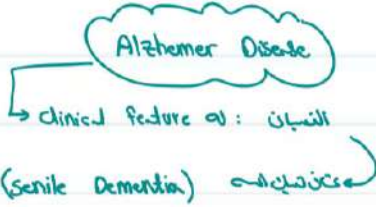 Alzhemer Disease
clinical feature ان : النسيان
(senile Dementia)